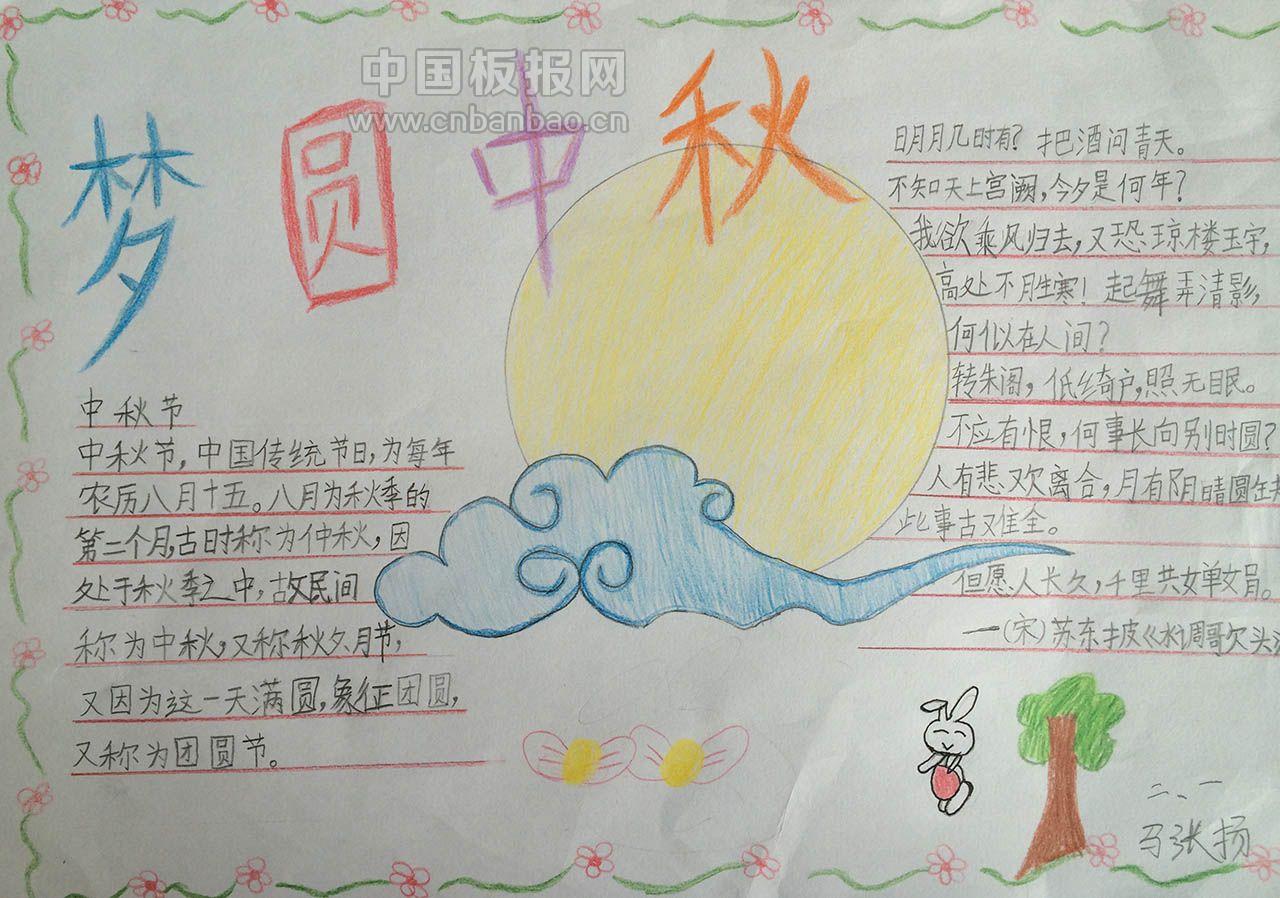 中国板报网
www.cnbanbao.cn
梦圆中秋
中秋节
中秋节，中国传统节日，为每年
农历八月十五。八月为秋季的
第二个月，古时称为仲秋，因
处于秋季之中，故民间
称为中秋，又称秋夕、月节，
又因为这一天满圆，象征团圆，
又称为团圆节。
明月几时有？把酒问青天。
不知天上宫阙，今夕是何年？
我欲乘风归去，又恐琼楼玉宇，
高处不胜寒！起舞弄清影，
何似在人间？
转朱阁，低绮户，照无眠。
不应有恨，何事长向别时圆？
人有悲欢离合，月有阴晴圆缺
此事古难全。
但愿人长久，千里共婵娟。
—（宋）苏东坡《水调歌头
二、一
马张扬